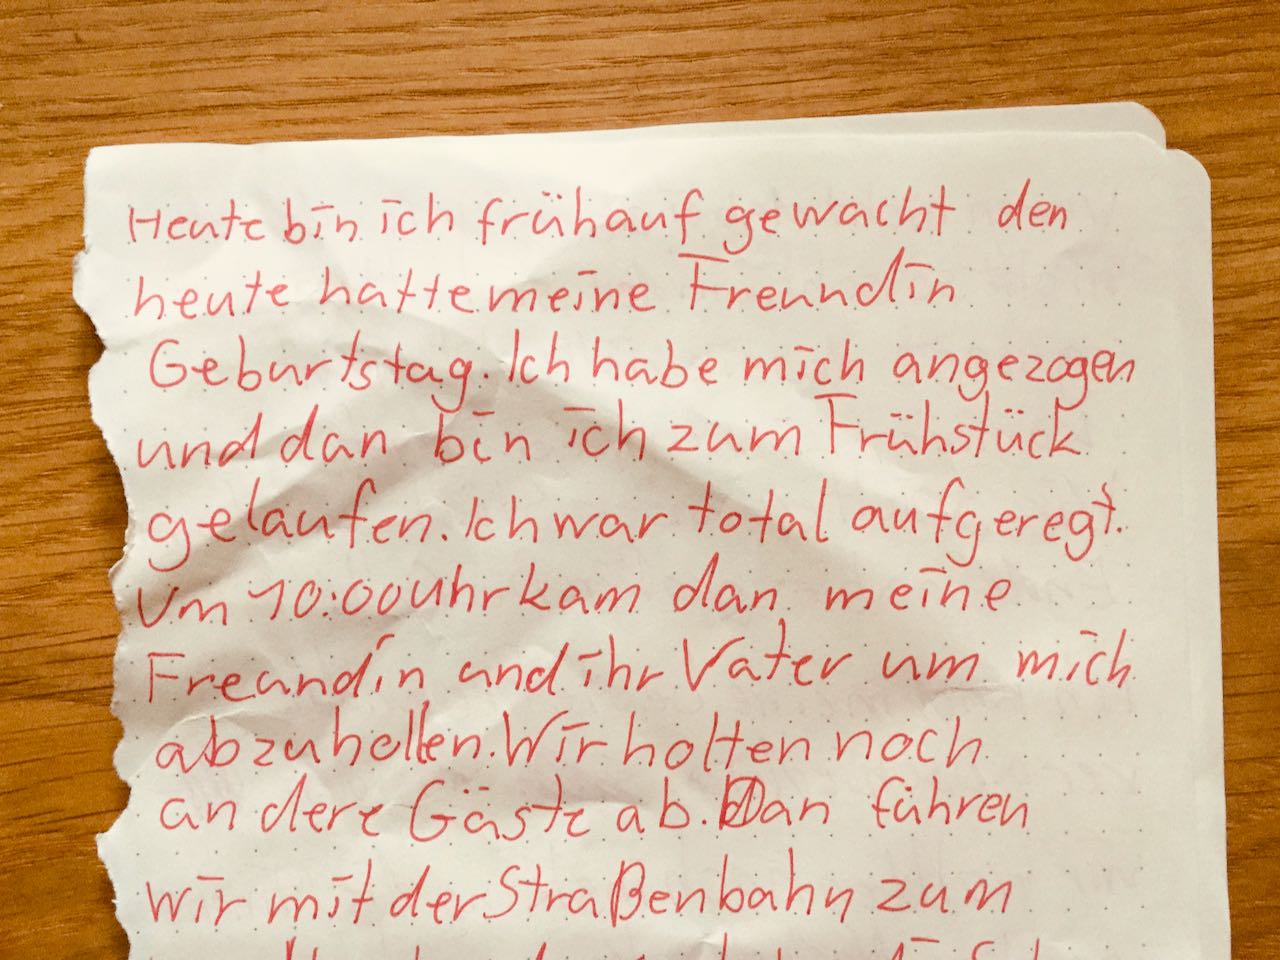 Heute bin ich früh auf gewacht den
heute hatte meine Freundin
Geburtstag. Ich habe mich angezogen
und dan bin ich zum Frühstück
gelaufen. Ich war total aufgeregt.
Um 10:00 Uhr kam dan meine
Freundin und ihr Vater um mich
abzuhollen. Wir holten noch
andere Gäste ab. Dan führen
wir mit der Straßenbahn zum